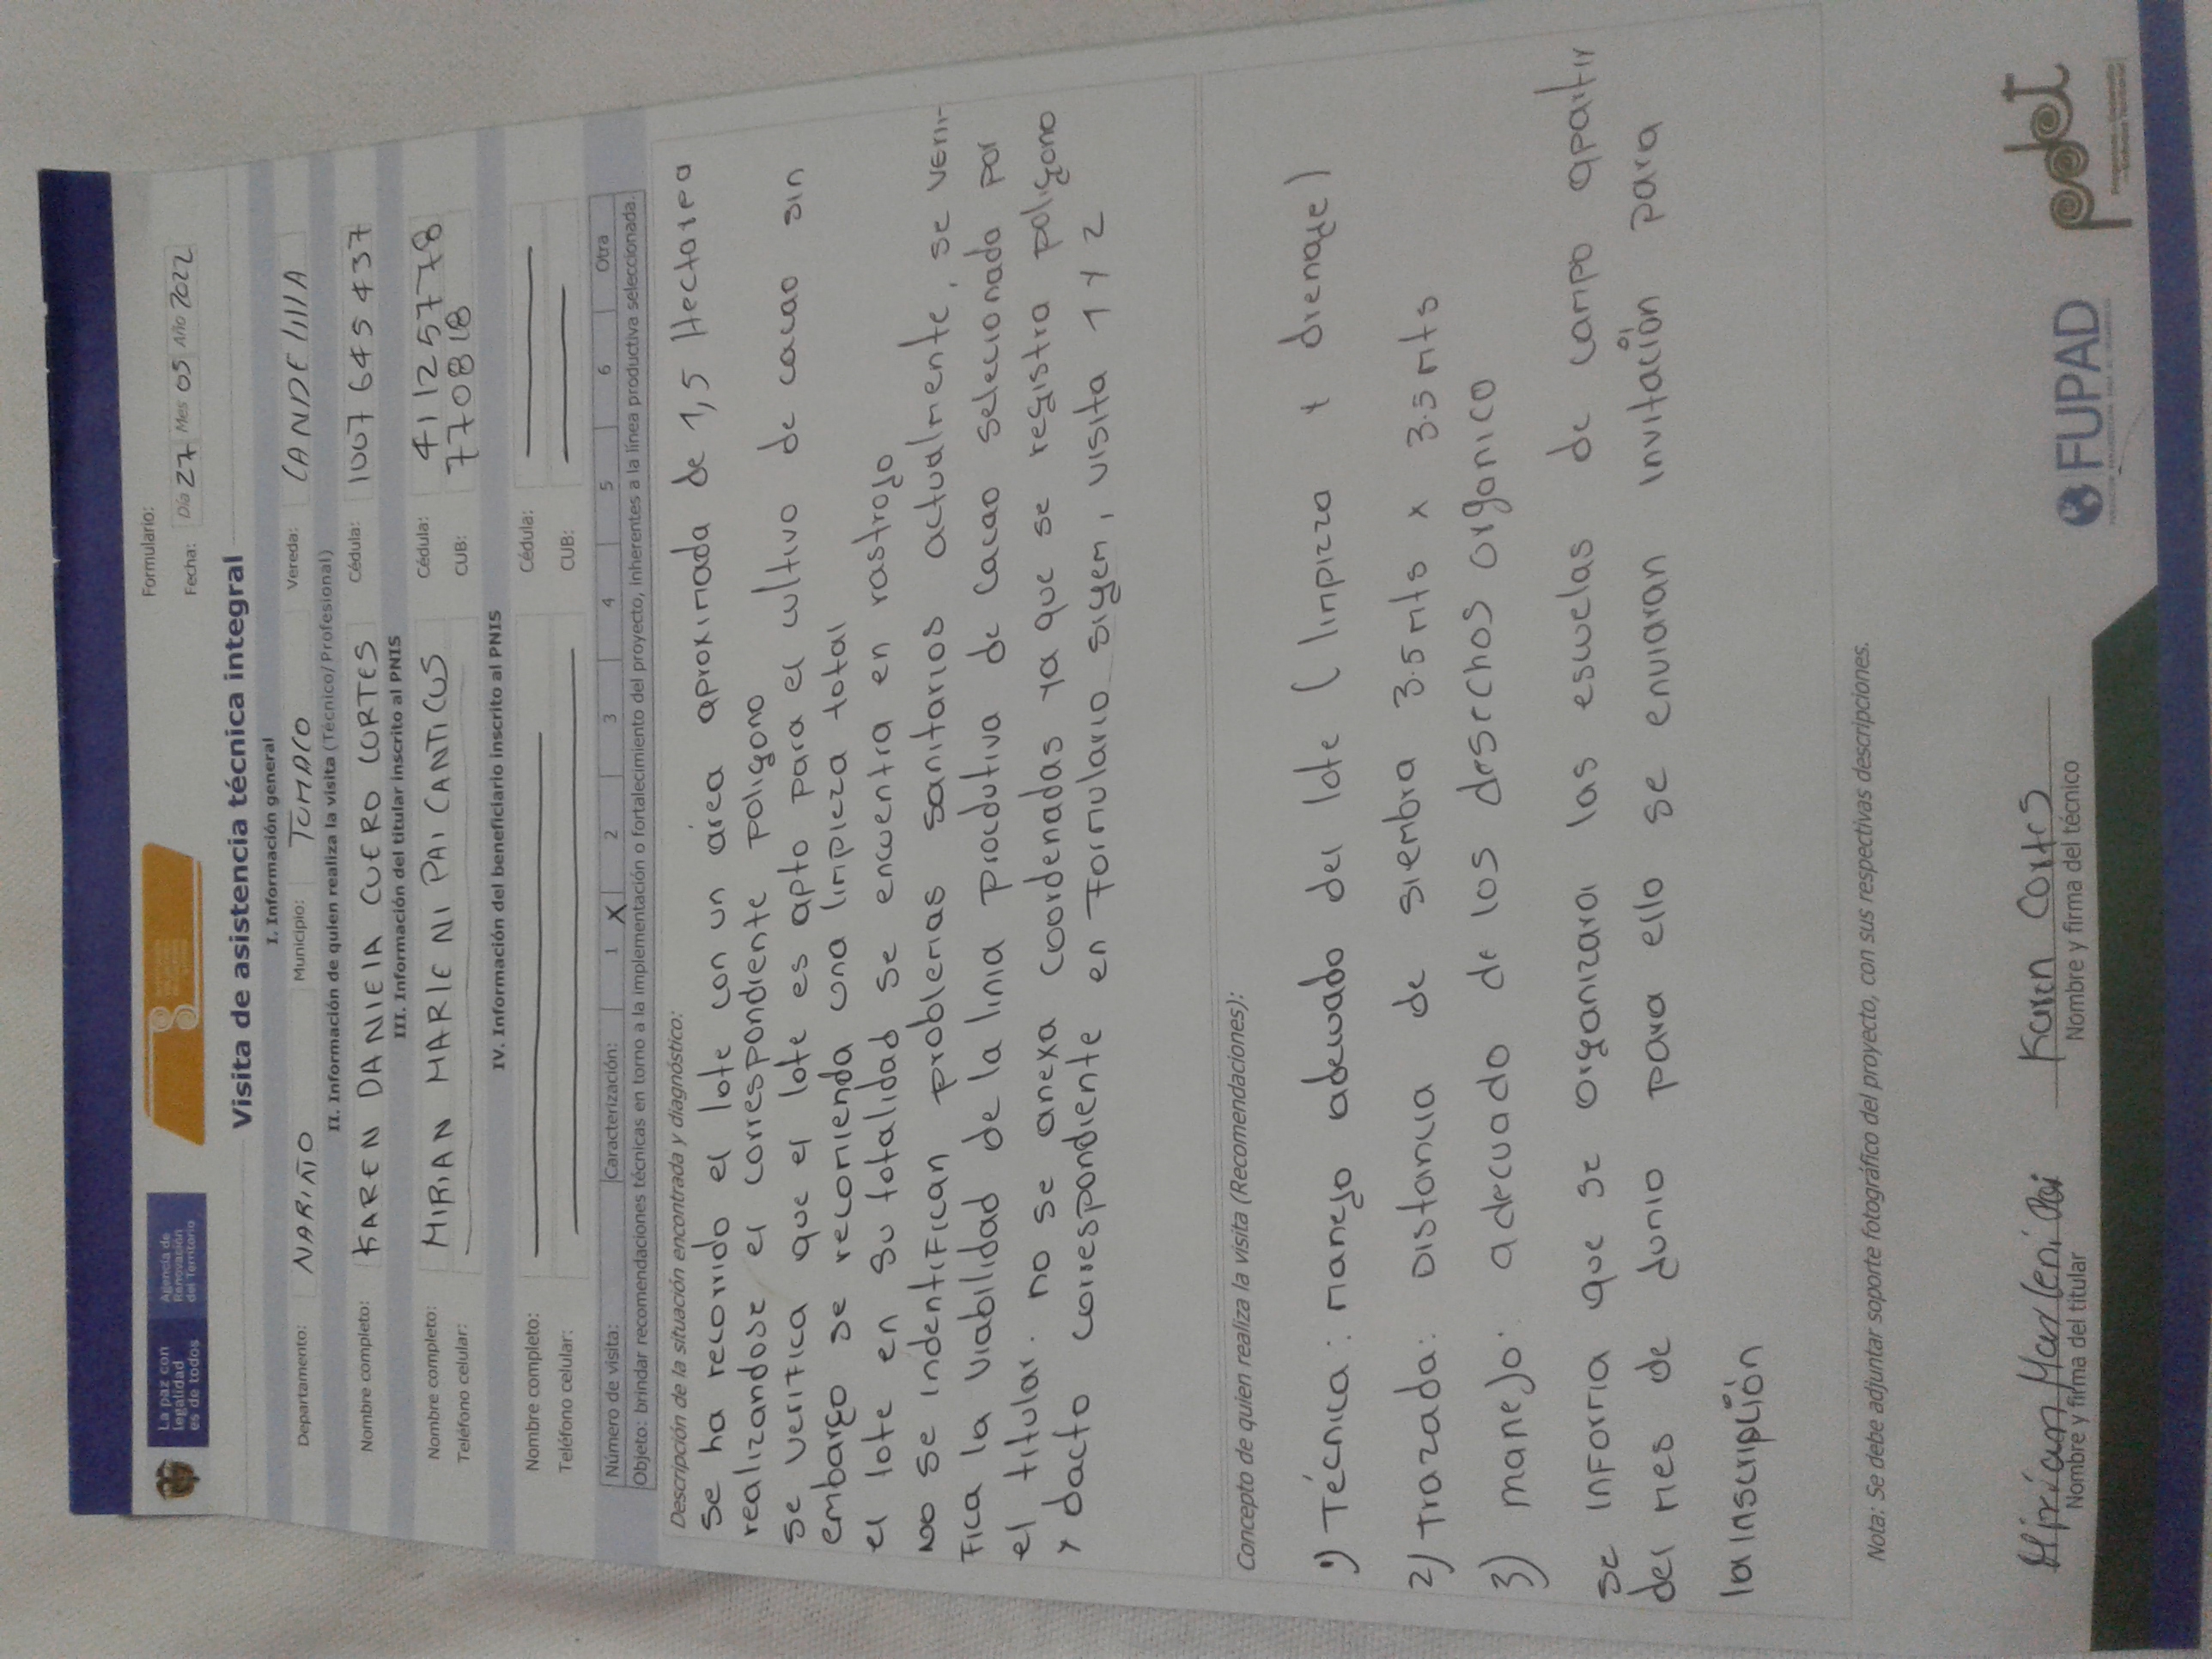 La paz con
legalidad
es de todos
Agencia de
Renovación
del Territorio
Formulario:
Fecha: Día 27 Mes 05 Año 2022
Visita de asistencia técnica integral
I. Información general
Departamento: NARIÑO Municipio: TUMACO Vereda: CANDElillA
II. Información de quien realiza la visita (Técnico/Profesional)
Nombre completo: KAREN DANIElA CUERO CORTES Cédula: 1007645437
III. Información del titular inscrito al PNIS
Nombre completo: MIRIAN MARLENI PAI CANTICUS Cédula: 41125778
Teléfono celular: CUB: 770818
IV. Información del beneficiario inscrito al PNIS
Nombre completo: Cédula:
Teléfono celular: CUB:
Número de visita: Caracterización: 1 X 2 3 4 5 6 Otra
Objeto: brindar recomendaciones técnicas en torno a la implementación o fortalecimiento del proyecto, inherentes a la línea productiva seleccionada.
Descripción de la situación encontrada y diagnóstico:
Se ha recorrido el lote con un área aproximada de 1,5 Hectarea
realizandose el correspondiente poligono
Se verifica que el lote es apto para el cultivo de cacao sin
embargo se recomienda una limpieza total
el lote en su totalidad se encuentra en rastrojo
No se indentifican problemas sanitarios actualmente, se veri-
fica la viabilidad de la linia produtiva de cacao selecionada por
el titular. no se anexa coordenadas ya que se registra poligono
y dacto correspondiente en formulario sigem, visita 1 y 2
Concepto de quien realiza la visita (Recomendaciones):
1) Técnica: manejo adecuado del lote (limpiza y drenaje)
2) Trazada: Distancia de siembra 3.5 mts x 3.5 mts
3) manejo: adecuado de los desechos organico
se informa que se organizara las escuelas de campo apartir
del mes de Junio para ello se enviaran invitación para
la inscripción
Nota: Se debe adjuntar soporte fotográfico del proyecto, con sus respectivas descripciones.
Mirian Marleni Pai
Nombre y firma del titular
Karen Cortes
Nombre y firma del técnico
FUPAD
pdet